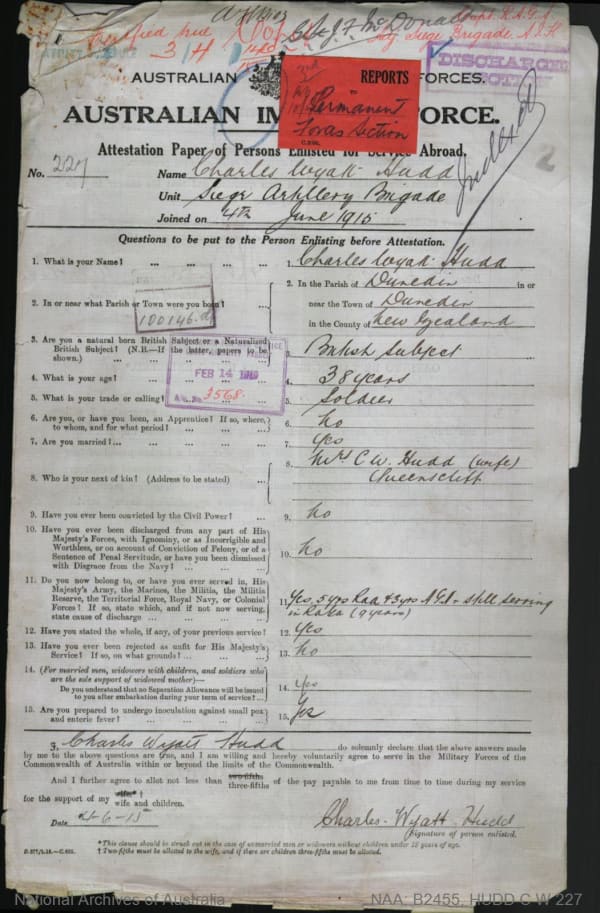 Capt. R.A.G.A.
C.S.J.F. McDonald
Siege Brigade, A.I.F.
3/4
DISCHARGED
Indexed
2
AUSTRALIAN
FORCES.
REPORTS
Permanent
Section
AUSTRALIAN IM
ORCE.
Attestation Paper of Persons Enlisted for Service Abroad.
No. 227 Name Charles Wyatt Hudd
Unit Siege Artillery Brigade
Joined on 4th June 1915
Questions to be put to the Person Enlisting before Attestation.
1. What is your Name? ... ... ... ... 1. Charles Wyatt Hudd
2. In or near what Parish or Town were you born? ... 2. In the Parish of Dunedin in or
near the Town of Dunedin
in the County of New Zealand
100146.d
3. Are you a natural born British Subject or a Naturalised
British Subject? (N.B.—If the latter, papers to be
shown.) 3. British Subject
FEB 14 1919
3568.
4. What is your age? 4. 38 years
5. What is your trade or calling? 5. Soldier
6. Are you, or have you been, an Apprentice? If so, where,
to whom, and for what period? 6. no
7. Are you married? ... 7. yes
8. Who is your next of kin? (Address to be stated) ... 8. Mrs C W. Hudd (wife)
Queenscliff
9. Have you ever been convicted by the Civil Power? ... 9. no
10. Have you ever been discharged from any part of His
Majesty's Forces, with Ignominy, or as Incorrigible and
Worthless, or on account of Conviction of Felony, or of a
Sentence of Penal Servitude, or have you been Dismissed
with Disgrace from the Navy? ... 10. no
11. Do you now belong to, or have you ever served in, His
Majesty's Army, the Marines, the Militia, the Militia
Reserve, the Territorial Force, Royal Navy, or Colonial
Forces? If so, state which, and if not now serving,
state cause of discharge ... 11. Yes, 5 yrs Raa, 4 5 yrs A.G.A - still serving
in RAGA (9 years)
12. Have you stated the whole, if any, of your previous service? 12. Yes
13. Have you ever been rejected as unfit for His Majesty's
Service? If so, on what grounds? ... 13. no
14. (For married men, widowers with children, and soldiers who
are the sole support of widowed mother)—
Do you understand that no Separation Allowance will be issued
to you after embarkation during your term of service? ... 14. yes
15. Are you prepared to undergo inoculation against small pox
and enteric fever? 15. Yes
I, Charles Wyatt Hudd do solemnly declare that the above answers made
by me to the above questions are true, and I am willing and hereby voluntarily agree to serve in the Military Forces of the
Commonwealth of Australia within or beyond the limits of the Commonwealth.
And I further agree to allot not less than two-fifths three-fifths of the pay payable to me from time to time during my service
for the support of my wife wife and children.
Date 4-6-15 Charles Wyatt Hudd
Signature of person enlisted.
* This clause should be struck out in the case of unmarried men or widowers without children under 18 years of age.
† Two-fifths must be allotted to the wife, and if there are children three-fifths must be allotted.
National Archives of Australia
NAA: B2455, HUDD C W 227